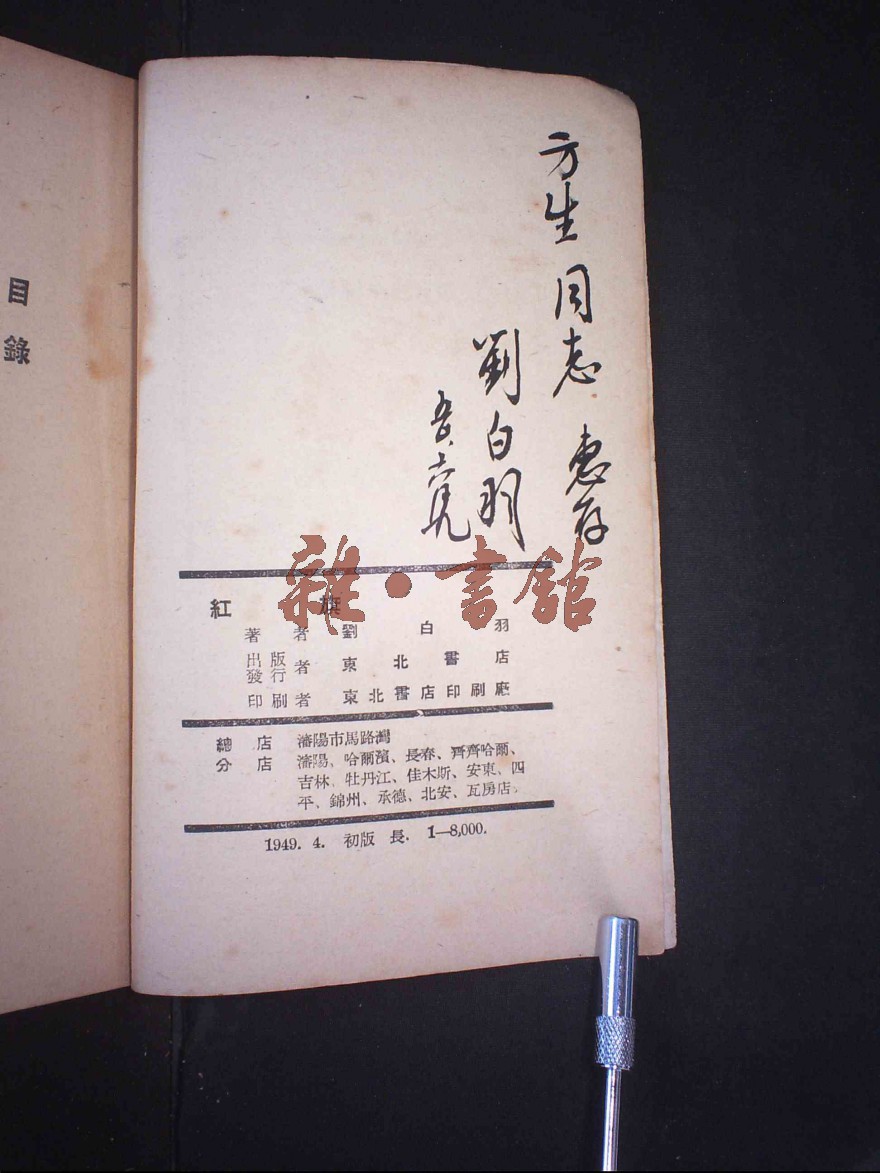 目錄
方生同志 惠存
劉白羽
雜·書館
紅 旗
著者 劉白羽
出版發行者 東北書店
印刷者 東北書店印刷廠
總店 瀋陽市馬路灣
分店 瀋陽、哈爾濱、長春、齊齊哈爾、
吉林、牡丹江、佳木斯、安東、四
平、錦州、承德、北安、瓦房店。
1949. 4. 初版 長. 1—8,000.